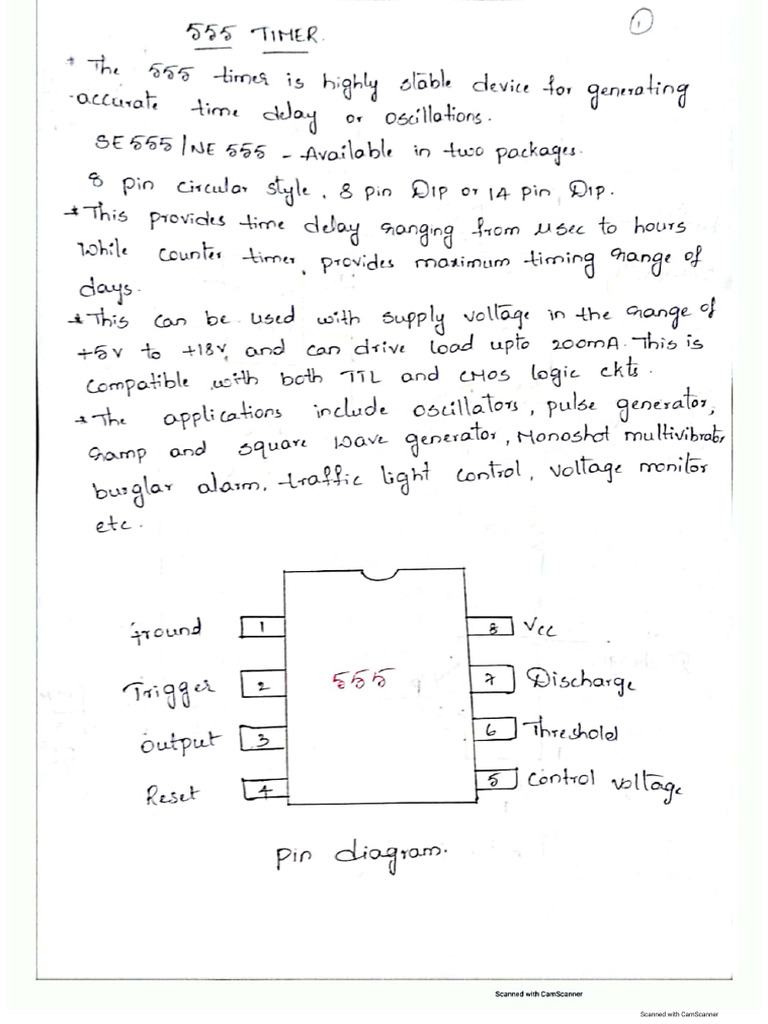 ①
555 TIMER.
* The 555 timer is highly stable device for generating
accurate time delay or oscillations.
SE555/NE 555 - Available in two packages.
8 pin circular style, 8 pin DIP or 14 pin DIP.
* This provides time delay ranging from μsec to hours
while counter timer, provides maximum timing range of
days.
* This can be used with supply voltage in the range of
+5v to +18v, and can drive load upto 200mA. This is
compatible with both TTL and CMOS logic ckts.
* The applications include oscillators, pulse generator,
ramp and square wave generator, Monoshot multivibrator
burglar alarm, traffic light control, voltage monitor
etc.
Ground 1 8 Vcc
Trigger 2 555 7 Discharge
output 3 6 Threshold
Reset 4 5 control voltage
pin diagram.
Scanned with CamScanner
Scanned with CamScanner